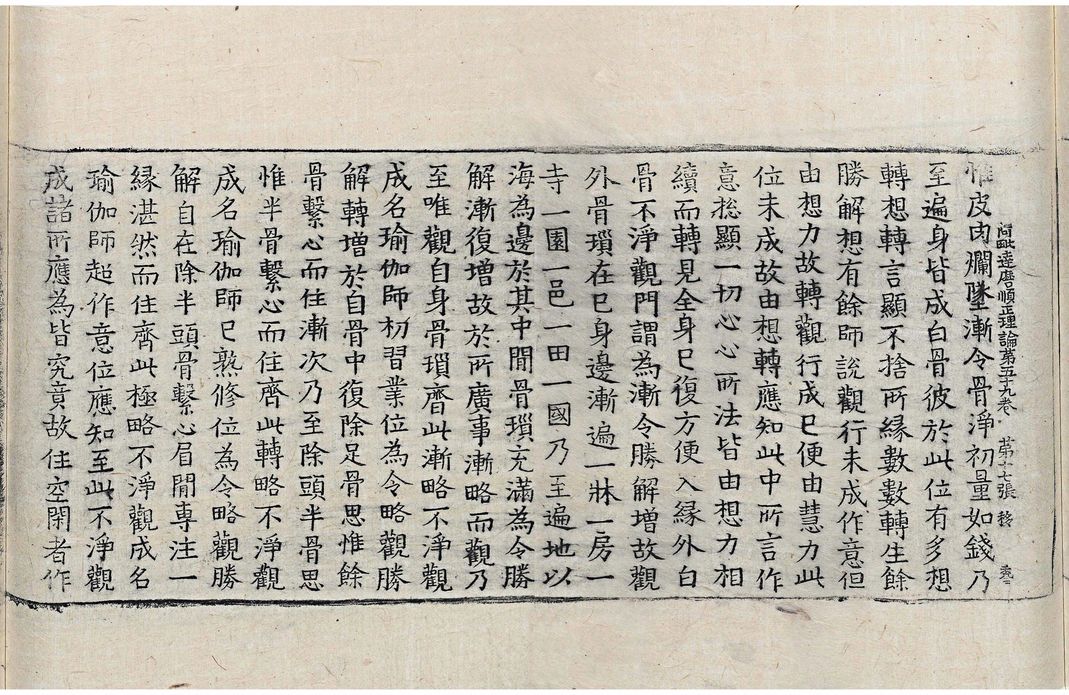 阿毗達磨順正理論第五十九卷 第十七張 移
惟皮肉爛墜漸令骨淨初量如錢乃
至遍身皆成白骨彼於此位有多想
轉想轉言顯不捨所緣數數轉生餘
勝解想有餘師說觀行未成作意但
由想力故轉觀行成已便由慧力此
位未成故由想轉應知此中所言作
意揔顯一切心心所法皆由想力相
續而轉見全身已復方便入緣外白
骨不淨觀門謂為漸令勝解增故觀
外骨瑣在已身邊漸遍一牀一房一
寺一園一邑一田一國乃至遍地以
海為邊於其中閒骨瑣充滿為令勝
解漸復增故於所廣事漸略而觀乃
至唯觀自身骨瑣齊此漸略不淨觀
成名瑜伽師初習業位為令略觀勝
解轉增於自骨中復除足骨思惟餘
骨繫心而住漸次乃至除頭半骨思
惟半骨繫心而住齊此轉略不淨觀
成名瑜伽師已熟修位為令略觀勝
解自在除半頭骨繫心眉閒專注一
緣湛然而住齊此極略不淨觀成名
瑜伽師超作意位應知至此不淨觀
成諸所應為皆究竟故住空閑者作